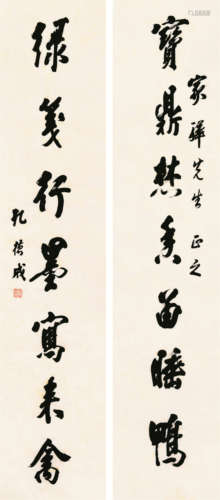 寶鼎焚香留睡鴨
家驊先生正之
綠箋行墨寫來禽
孔德成